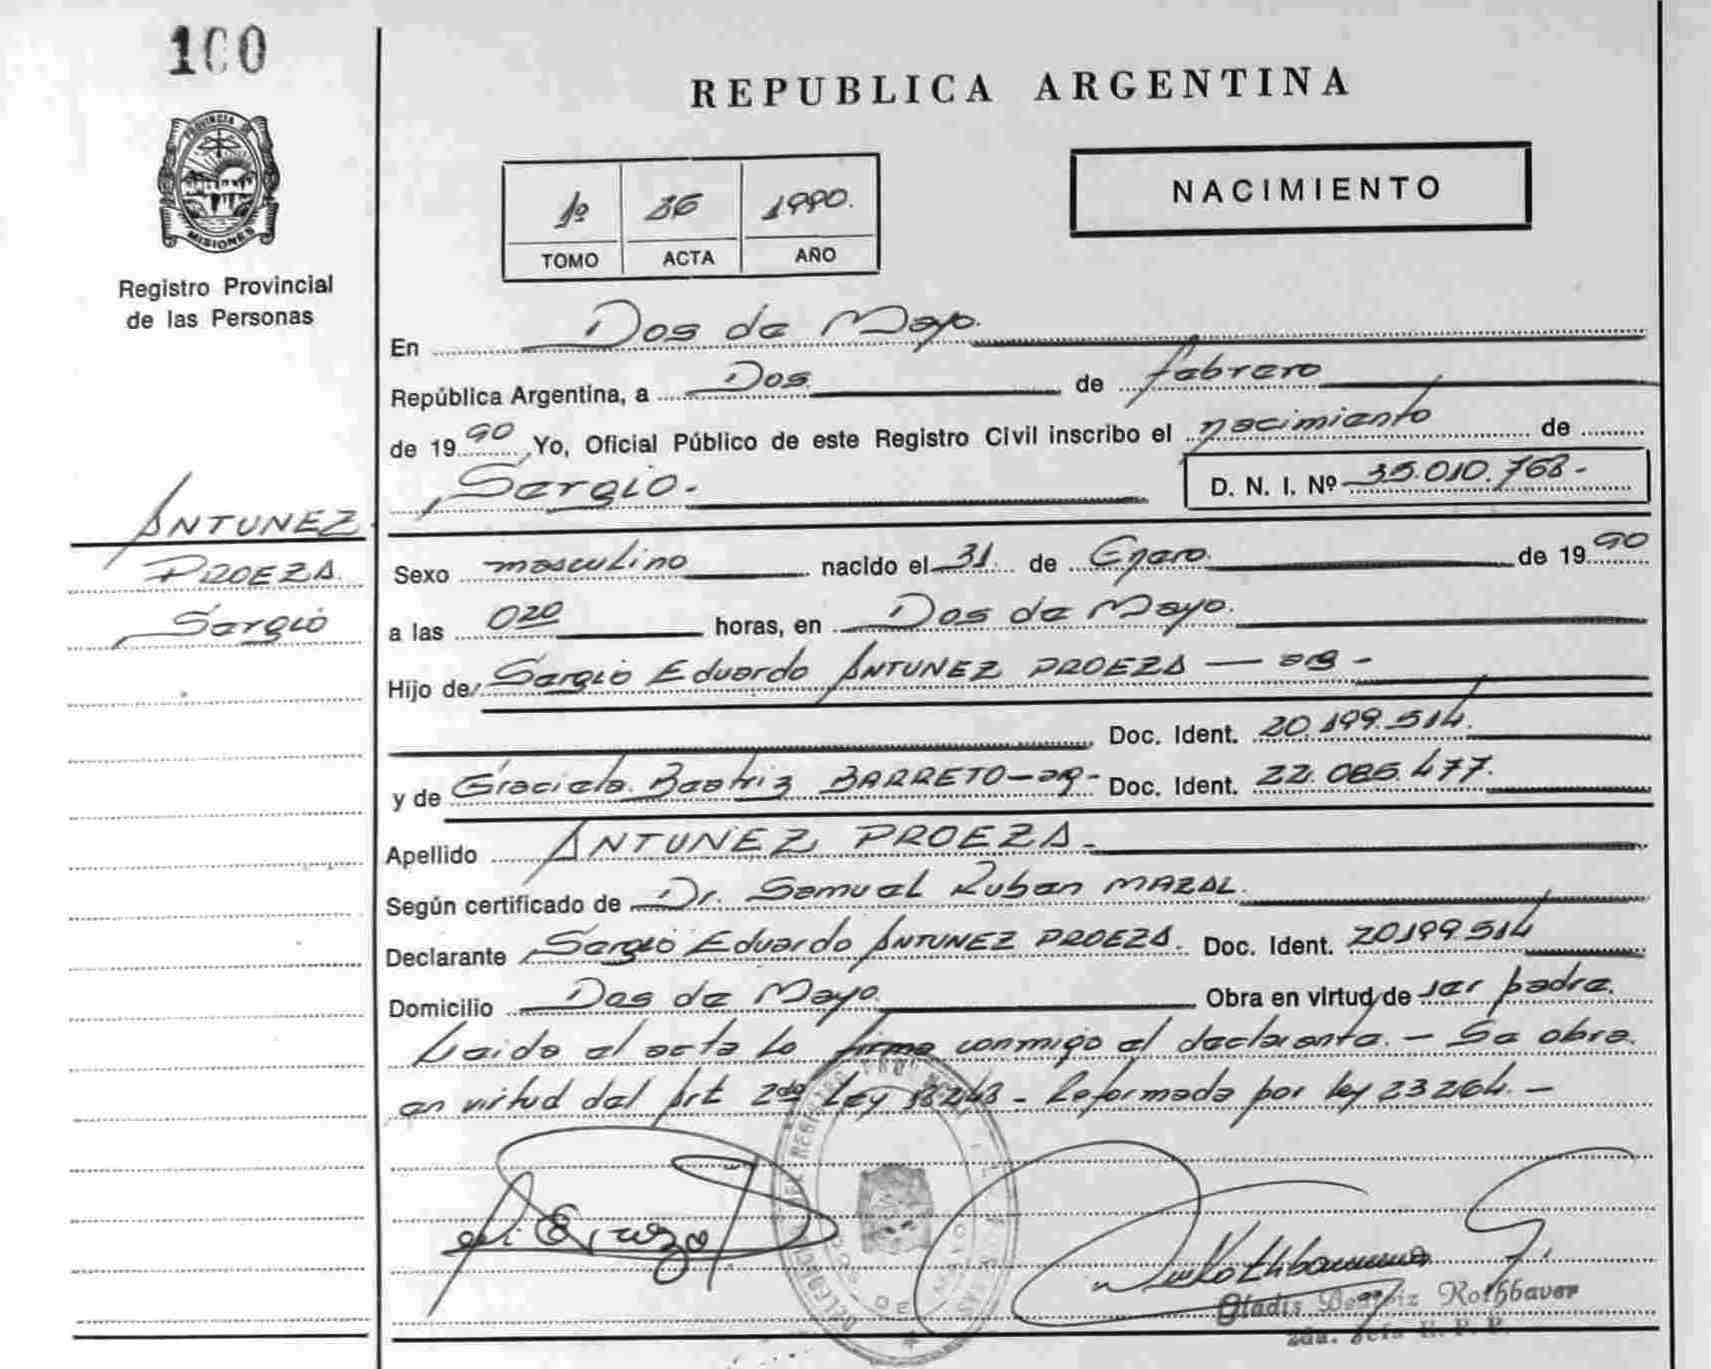 100
REPUBLICA ARGENTINA
PROVINCIA DE
MISIONES
Registro Provincial
de las Personas
NACIMIENTO
1º 36 1990.
TOMO ACTA AÑO
En Dos de Mayo.
República Argentina, a Dos de febrero
de 1990 Yo, Oficial Público de este Registro Civil inscribo el nacimiento de
Sergio.- D. N. I. Nº 35.010.768-
ANTUNEZ
PROEZA
Sergio
Sexo masculino nacido el 31 de Enero. de 1990
a las 020 horas, en Dos de Mayo.
Hijo de Sergio Eduardo ANTUNEZ PROEZA — arg -
Doc. Ident. 20.199.514.
y de Graciela Beatriz BARRETO - arg - Doc. Ident. 22.085.477.
Apellido ANTUNEZ PROEZA.-
Según certificado de Dr. Samuel Ruben MAZAL.
Declarante Sergio Eduardo ANTUNEZ PROEZA. Doc. Ident. 20199514
Domicilio Dos de Mayo. Obra en virtud de ser padre.
Leida el acta la firma conmigo el declarante. - Se obra
en virtud del Art 2do Ley 18248 - Reformada por ley 23264. -
DOS DE MAYO
Gladis Beatriz Rothbauer